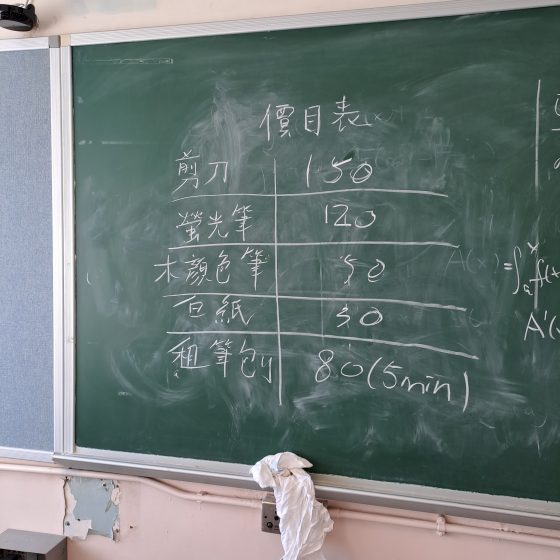 價目表
剪刀 150
螢光筆 120
木顏色筆 50
白紙 30
租筆刨 80 (5min)
A(x) = ∫
A'(